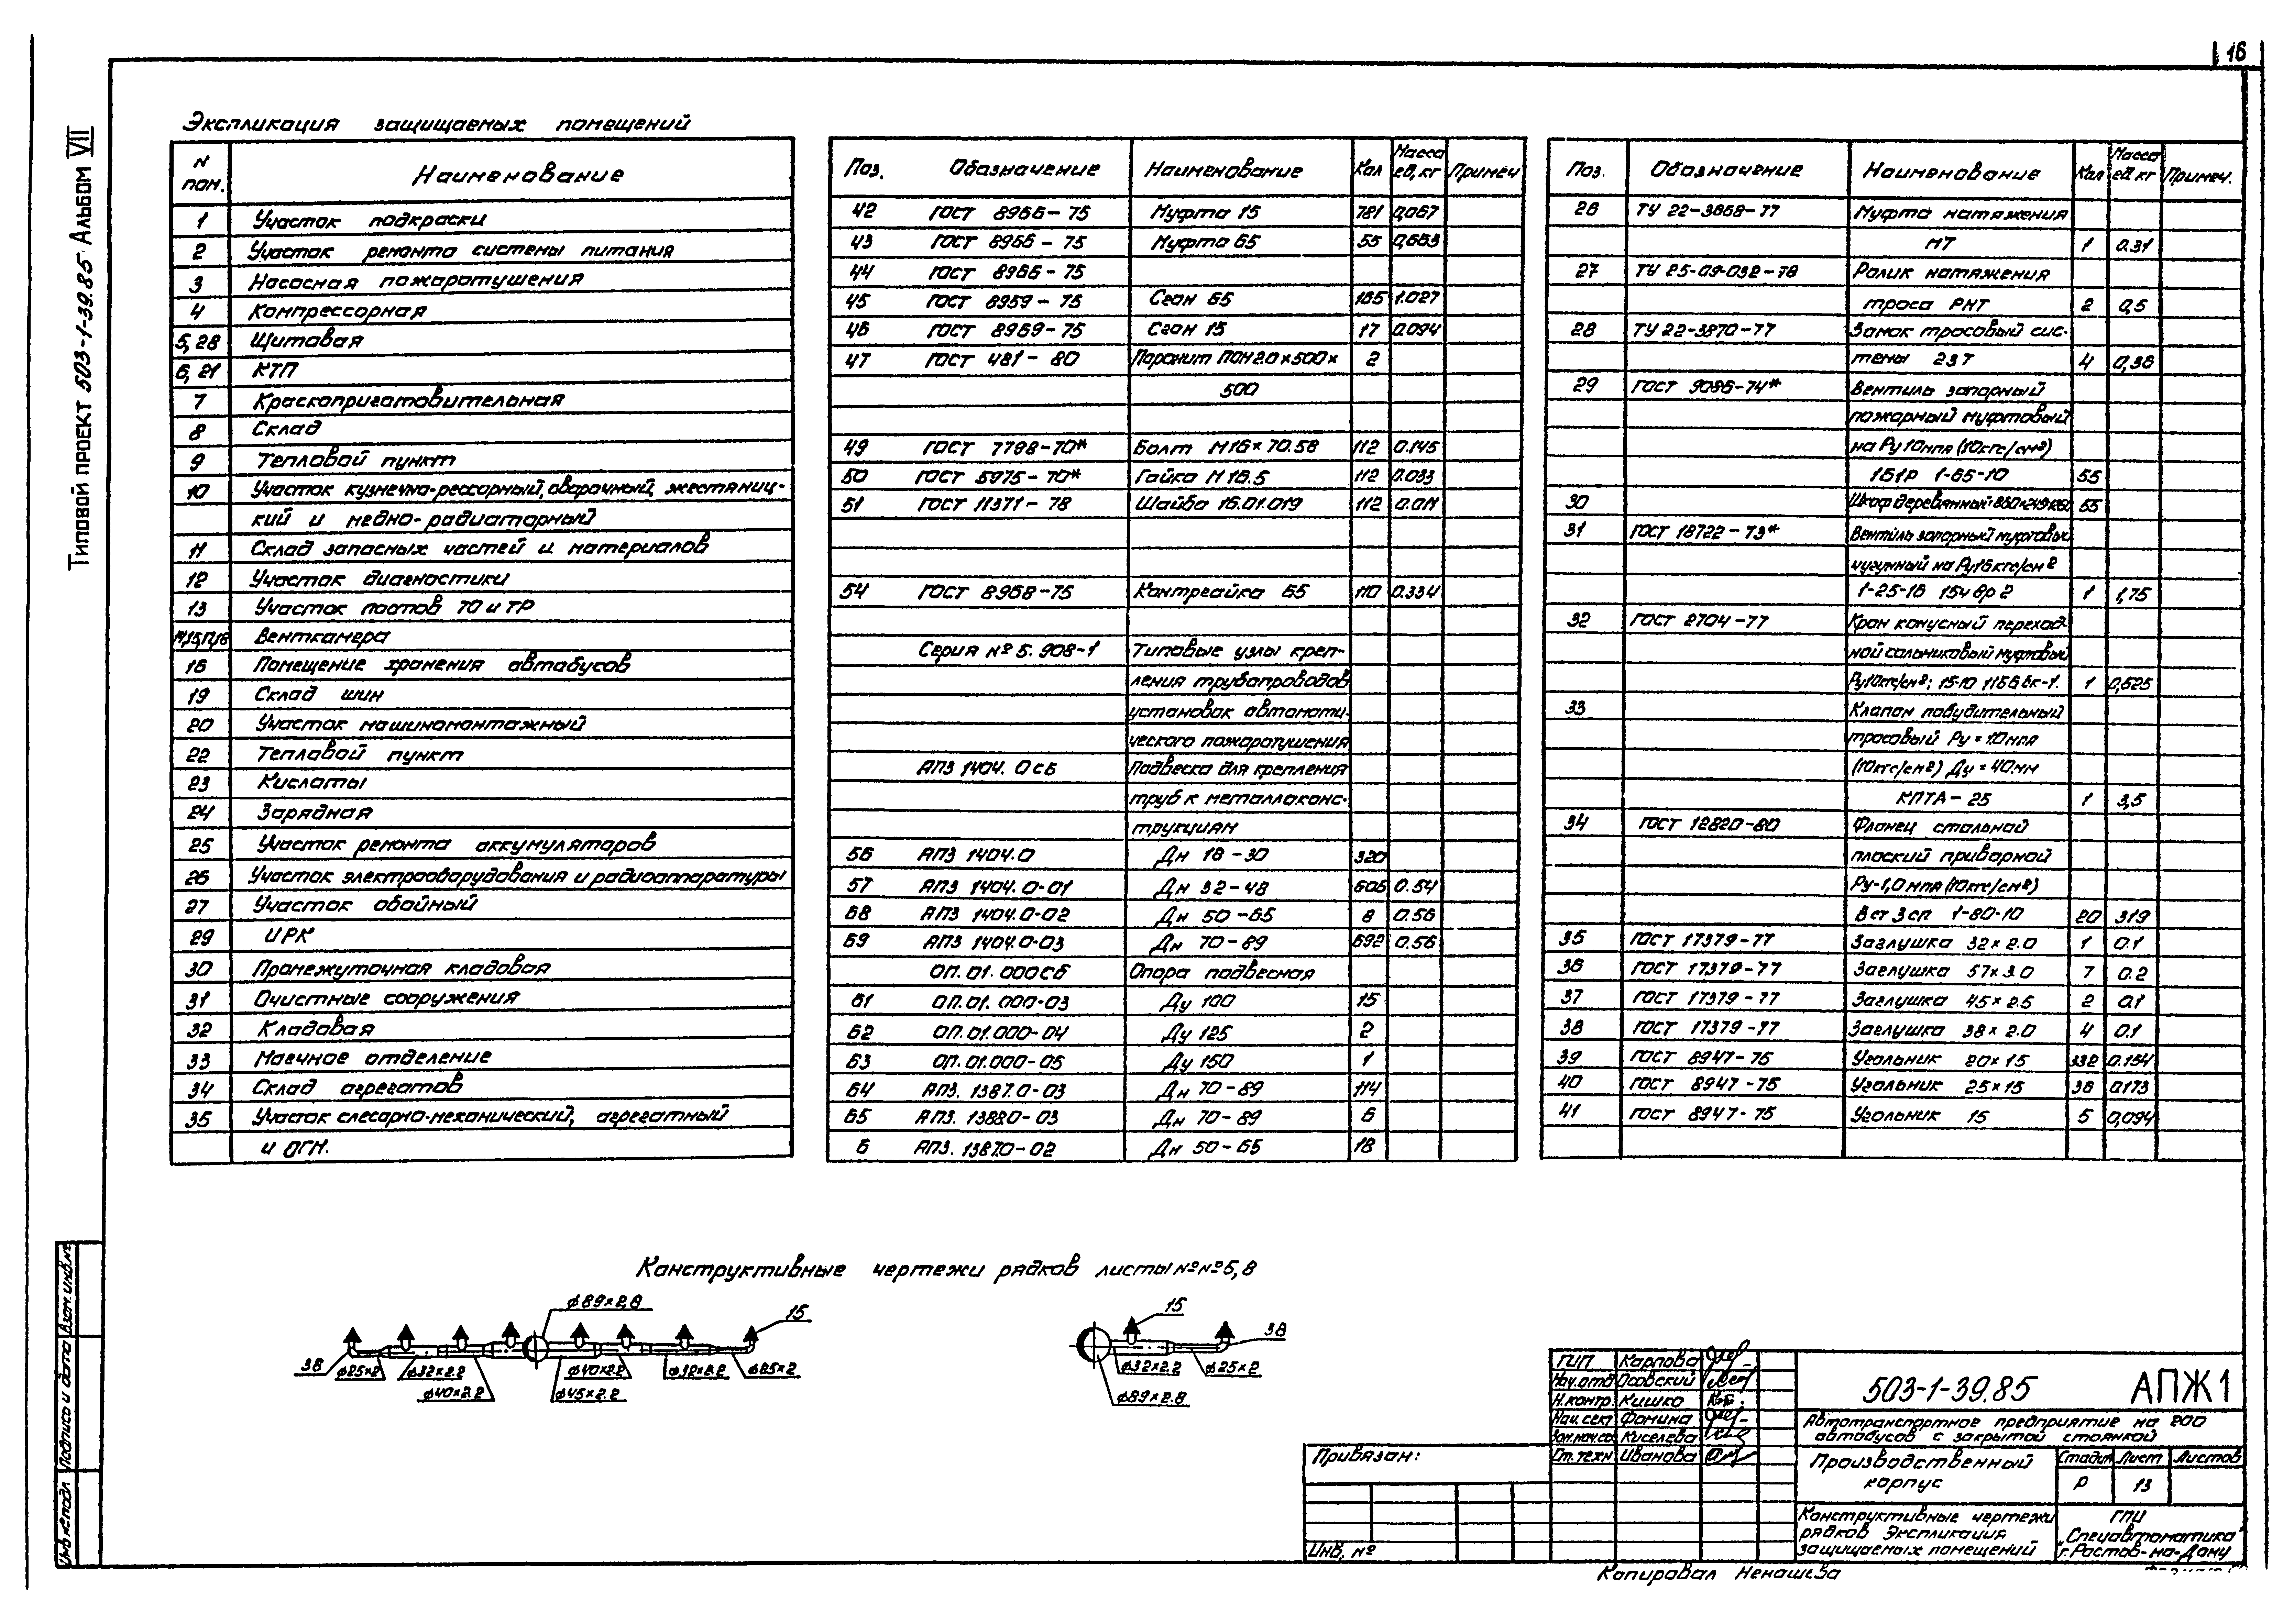 16
Типовой проект 503-1-39.85 Альбом VII
Экспликация защищаемых помещений
N пом. Наименование
1 Участок подкраски
2 Участок ремонта системы питания
3 Насосная пожаротушения
4 Компрессорная
5,28 Щитовая
6,21 КТП
7 Краскоприготовительная
8 Склад
9 Тепловой пункт
10 Участок кузнечно-рессорный, сварочный, жестяниц-
кий и медно-радиаторный
11 Склад запасных частей и материалов
12 Участок диагностики
13 Участок постов ТО и ТР
Венткамера
18 Помещение хранения автобусов
19 Склад шин
20 Участок машиномонтажный
22 Тепловой пункт
23 Кислоты
24 Зарядная
25 Участок ремонта аккумуляторов
26 Участок электрооборудования и радиоаппаратуры
27 Участок обойный
29 ИРК
30 Промежуточная кладовая
31 Очистные сооружения
32 Кладовая
33 Моечное отделение
34 Склад агрегатов
35 Участок слесарно-механический, агрегатный
и ОГМ.
Поз. Обозначение Наименование Кол Масса ед, кг Примеч
42 ГОСТ 8966-75 Муфта 15 781 0,067
43 ГОСТ 8966-75 Муфта 65 55
44 ГОСТ 8966-75
45 ГОСТ 8969-75 Сгон 65 165 1.027
46 ГОСТ 8969-75 Сгон 15 17 0.094
47 ГОСТ 481-80 Паронит ПОН 2.0×500×
2
500
49 ГОСТ 7798-70* Болт М16×70.58 112 0.145
50 ГОСТ 5975-70* Гайка М16.5 112 0.033
51 ГОСТ 11371-78 Шайба 16.01.019 112 0.011
54 ГОСТ 8968-75 Контргайка 65 110 0.334
Серия №5.908-1 Типовые узлы креп-
ления трубопроводов
установок автомати-
ческого пожаротушения
АПЗ 1404.0сб Подвеска для крепления
труб к металлоконс-
трукциям
56 АПЗ 1404.0 Дн 18-30 320
57 АПЗ 1404.0-01 Дн 32-48 606 0.54
68 АПЗ 1404.0-02 Дн 50-65 8 0.56
69 АПЗ 1404.0-03 Дн 70-89 692 0.56
ОП.01.000сб Опора подвесная
61 ОП.01.000-03 Ду 100 15
62 ОП.01.000-04 Ду 125 2
63 ОП.01.000-05 Ду 150 1
64 АПЗ.1387.0-03 Дн 70-89 114
65 АПЗ.1388.0-03 Дн 70-89 6
6 АПЗ.1387.0-02 Дн 50-65 18
Поз. Обозначение Наименование Кол Масса ед кг Примеч.
26 ТУ 22-3868-77 Муфта натяжения
МТ 1 0.31
27 ТУ 25-09-032-78 Ролик натяжения
троса РНТ 2 0,5
28 ТУ 22-3870-77 Замок тросовый сис-
темы 23Т 4 0,36
29 ГОСТ 9086-74* Вентиль запорный
пожарный муфтовый
на Ру 10мпа (10кгс/см²)
1Б1р 1-65-10 55
30 Шкаф деревянный 55
31 ГОСТ 18722-73* Вентиль запорный муфтовый
чугунный на Ру16кгс/см²
1-25-16 15ч8р2 1 1,75
32 ГОСТ 2704-77 Кран конусный переход-
ной сальниковый муфтовый
Ру10кгс/см²; 15-10 11Б6бк-1. 1 0,525
33 Клапан побудительный
тросовый Ру = 1.0мпа
(10кгс/см²) Ду = 40мм
КПТА-25 1 3,5
34 ГОСТ 12820-80 Фланец стальной
плоский приварной
Ру-1,0мпа (10кгс/см²)
Вст 3сп 1-80-10 20 3.19
35 ГОСТ 17379-77 Заглушка 32×2.0 1 0.1
36 ГОСТ 17379-77 Заглушка 57×3.0 7 0.2
37 ГОСТ 17379-77 Заглушка 45×2.5 2 0.1
38 ГОСТ 17379-77 Заглушка 38×2.0 4 0.1
39 ГОСТ 8947-75 Угольник 20×15 332 0.154
40 ГОСТ 8947-75 Угольник 25×15 36 0.173
41 ГОСТ 8947-75 Угольник 15 5 0,094
Конструктивные чертежи рядков листы №№6,8
ф89×2.8
15
38
ф25×2
ф32×2.2
ф40×2.2
ф45×2.2
ф40×2.2
ф32×2.2
ф25×2
15
38
ф32×2.2
ф25×2
ф89×2.8
Взам.инв.№
Подпись и дата
Инв.№ подл
Привязан:
Инв. №
ГИП Карпова
Нач.отд Осовский
Н.контр. Кишко
Нач.сект Фомина
Зам.нач.сек Киселева
Ст.техн Иванова
503-1-39.85 АПЖ1
Автотранспортное предприятие на 200
автобусов с закрытой стоянкой
Производственный
корпус
Стадия Лист Листов
Р 13
Конструктивные чертежи
рядков Экспликация
защищаемых помещений
ГПИ
"Спецавтоматика"
г.Ростов-на-Дону
Копировал Ненашева